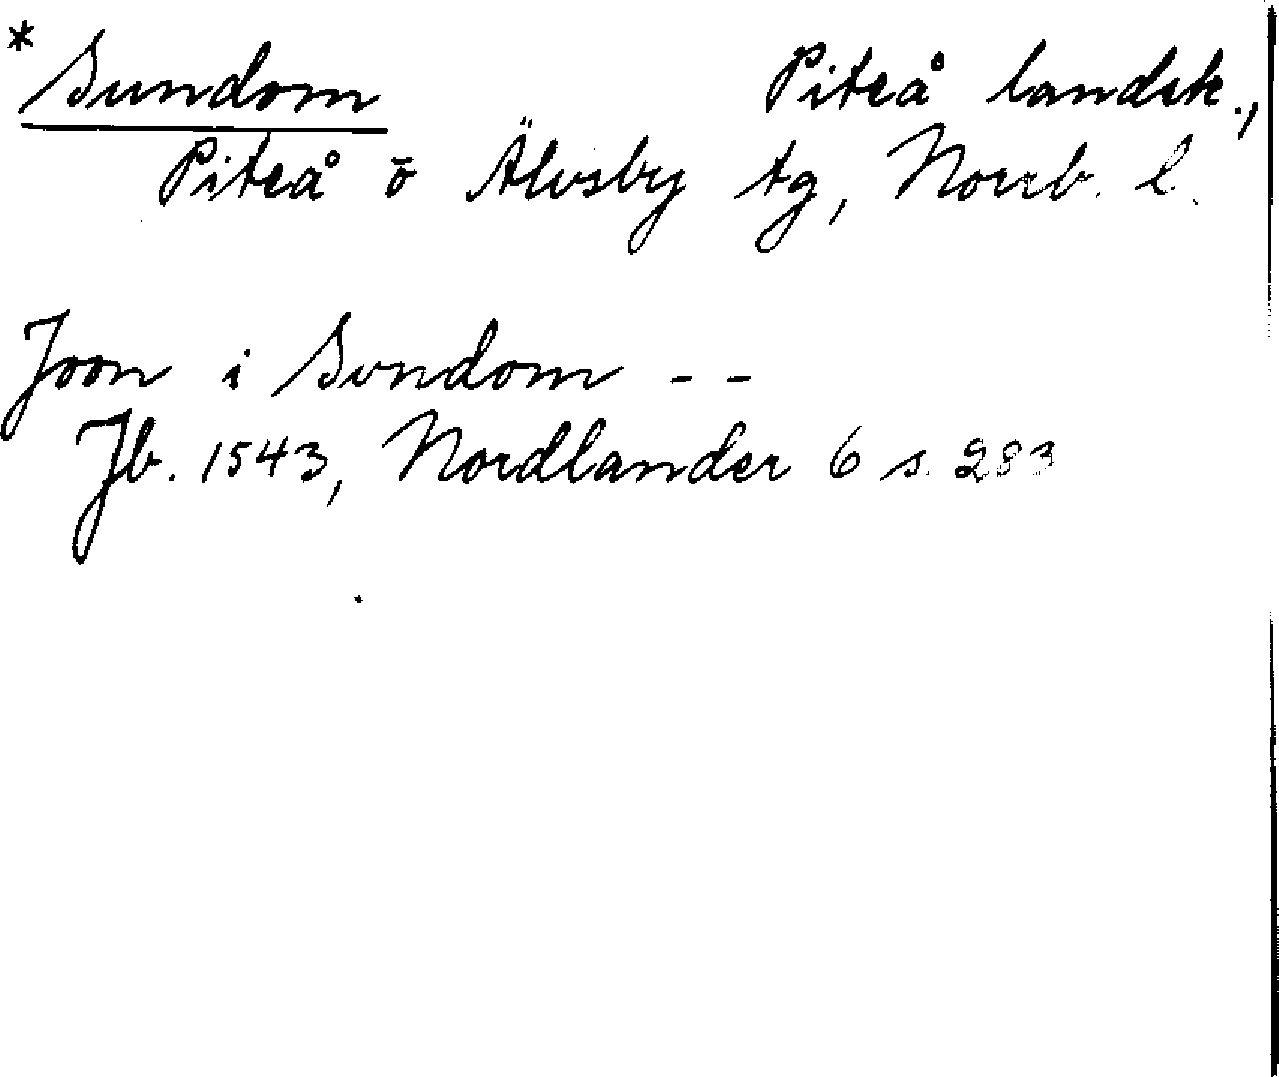 * Sundom Piteå landsk.,
Piteå o Älvsby tg, Norrb. l.
Joon i Svndom - -
Jb. 1543, Nordlander 6 s. 283